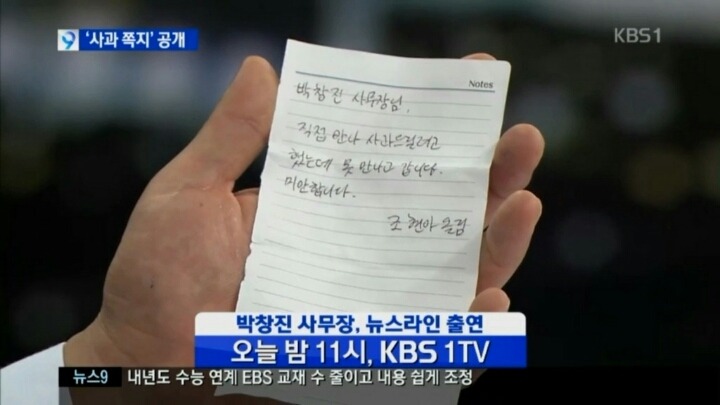 9 '사과 쪽지' 공개
KBS1
Notes
박창진 사무장님.
직접 만나 사과드릴려고
했는데 못 만나고 갑니다.
미안합니다.
조현아 올림
박창진 사무장, 뉴스라인 출연
오늘 밤 11시, KBS 1TV
뉴스9 내년도 수능 연계 EBS 교재 수 줄이고 내용 쉽게 조정